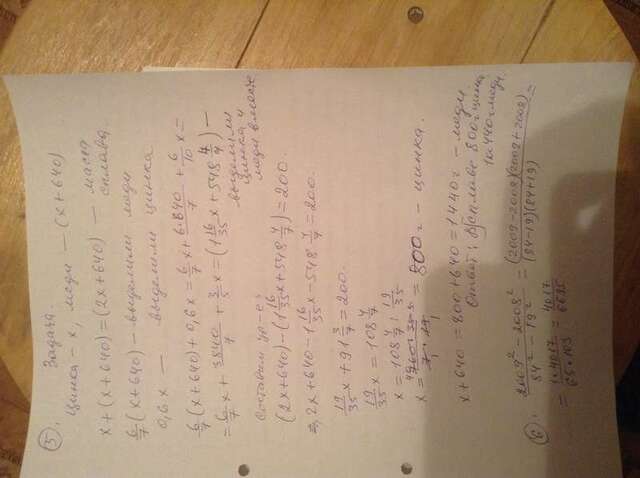 Задача
5. Цинка – x, меди – (x+640)
x+(x+640) = (2x+640) – масса сплава.
6/7(x+640) – выделили меди
0,6x – выделили цинка
6/7(x+640)+0,6x = 6/7x + 6·640/7 + 6/10x =
= 6/7x + 3840/7 + 3/5x = (1 16/35x + 548 4/7) –
выделили
цинка и
меди вместе
Составим ур-е:
(2x+640) – (1 16/35x + 548 4/7) = 200.
2x+640 – 1 16/35x – 548 4/7 = 200.
19/35x + 91 3/7 = 200.
19/35x = 108 4/7
x = 108 4/7 : 19/35
x = 760·35/7·19 = 800 г – цинка.
x+640 = 800+640 = 1440 г – меди.
Ответ: в сплаве 800 г цинка
и 1440 г меди.
6. 2009² – 2008² / 84² – 19² = (2009–2008)(2009+2008) / (84–19)(84+19) =
= 1·4017 / 65·103 = 4017 / 6695